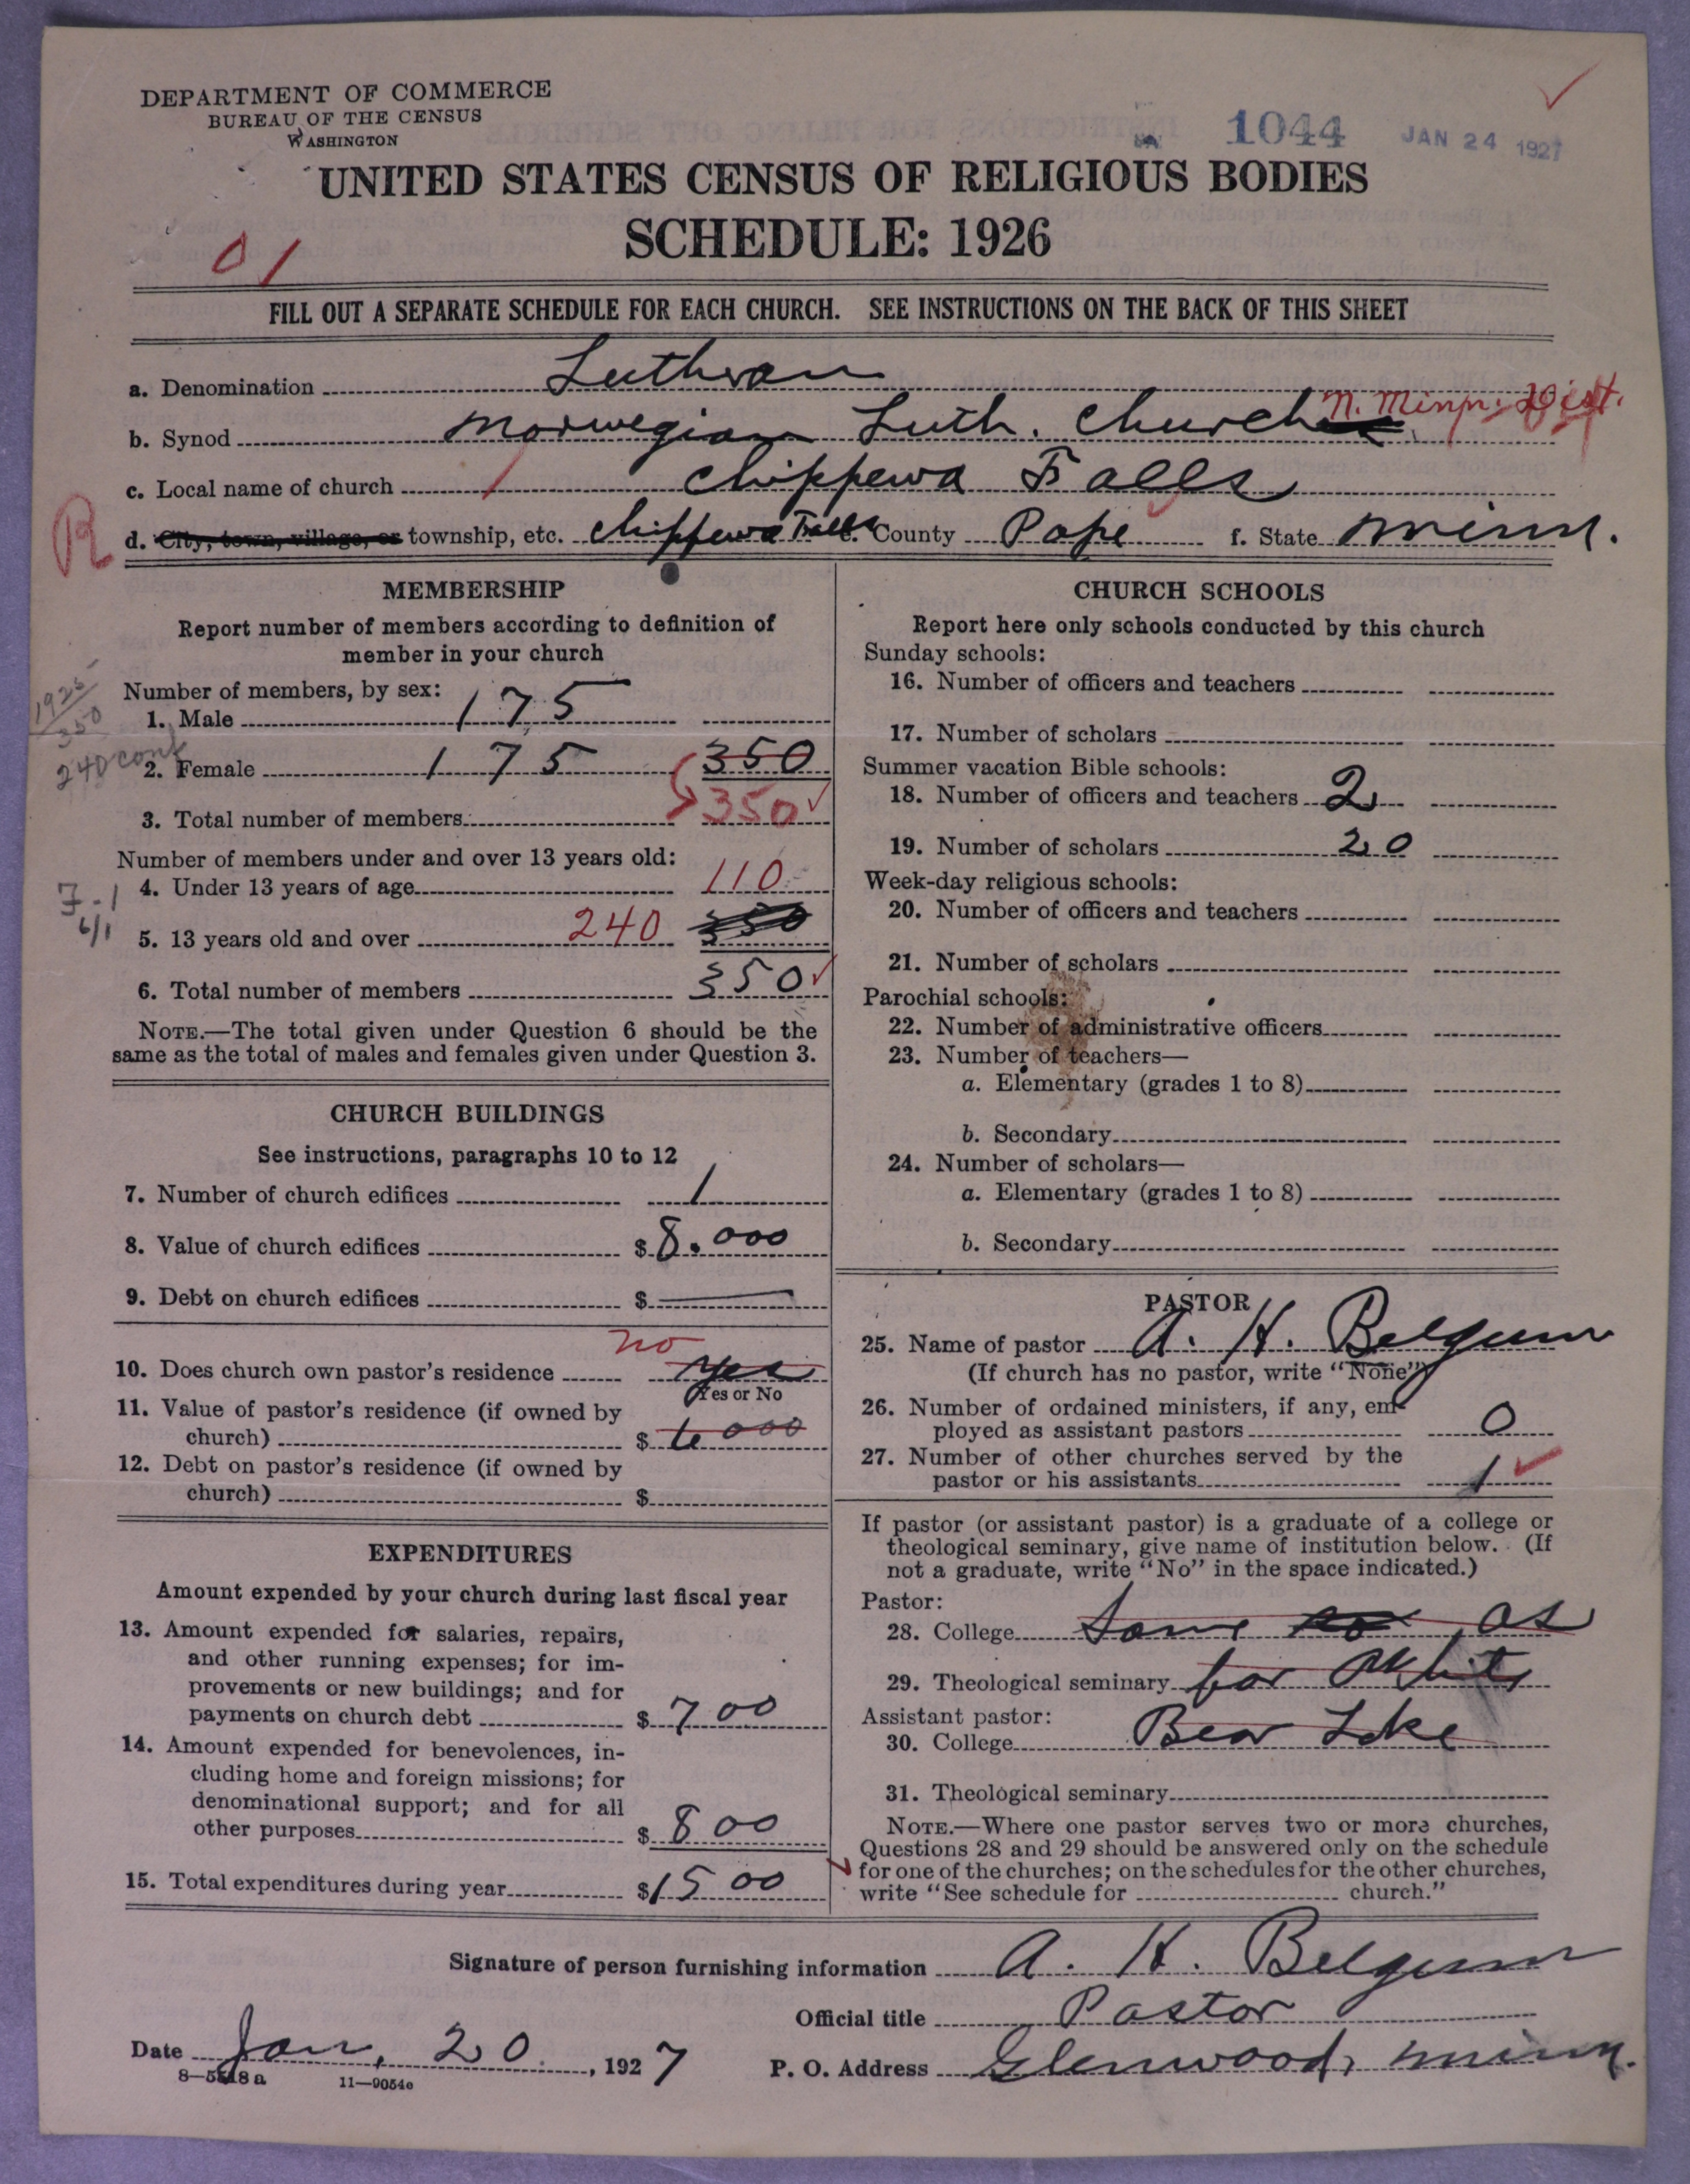 DEPARTMENT OF COMMERCE
BUREAU OF THE CENSUS
WASHINGTON
1044 JAN 24 1927
UNITED STATES CENSUS OF RELIGIOUS BODIES
SCHEDULE: 1926
01
FILL OUT A SEPARATE SCHEDULE FOR EACH CHURCH. SEE INSTRUCTIONS ON THE BACK OF THIS SHEET
a. Denomination Lutheran
b. Synod Norwegian Luth. Church N. Minn. Dist.
c. Local name of church Chippewa Falls
R
d. City, town, village, or township, etc. Chippewa Falls e. County Pope f. State Minn.
MEMBERSHIP
Report number of members according to definition of
member in your church
Number of members, by sex:
1925
350
240 conf
1. Male 175
2. Female 175 350
3. Total number of members 350
Number of members under and over 13 years old:
4. Under 13 years of age 110
7-1
6/1
5. 13 years old and over 240 350
6. Total number of members 350
NOTE.—The total given under Question 6 should be the
same as the total of males and females given under Question 3.
CHURCH BUILDINGS
See instructions, paragraphs 10 to 12
7. Number of church edifices 1
8. Value of church edifices $ 8.000
9. Debt on church edifices $ —
10. Does church own pastor's residence no yes
Yes or No
11. Value of pastor's residence (if owned by
church) $ 6000
12. Debt on pastor's residence (if owned by
church) $
EXPENDITURES
Amount expended by your church during last fiscal year
13. Amount expended for salaries, repairs,
and other running expenses; for im-
provements or new buildings; and for
payments on church debt $ 700
14. Amount expended for benevolences, in-
cluding home and foreign missions; for
denominational support; and for all
other purposes $ 800
15. Total expenditures during year $ 1500
CHURCH SCHOOLS
Report here only schools conducted by this church
Sunday schools:
16. Number of officers and teachers
17. Number of scholars
Summer vacation Bible schools:
18. Number of officers and teachers 2
19. Number of scholars 20
Week-day religious schools:
20. Number of officers and teachers
21. Number of scholars
Parochial schools:
22. Number of administrative officers
23. Number of teachers—
a. Elementary (grades 1 to 8)
b. Secondary
24. Number of scholars—
a. Elementary (grades 1 to 8)
b. Secondary
PASTOR
25. Name of pastor A. H. Belgum
(If church has no pastor, write "None")
26. Number of ordained ministers, if any, em-
ployed as assistant pastors 0
27. Number of other churches served by the
pastor or his assistants 1
If pastor (or assistant pastor) is a graduate of a college or
theological seminary, give name of institution below. (If
not a graduate, write "No" in the space indicated.)
Pastor:
28. College Same as
29. Theological seminary for White
Assistant pastor:
30. College Bear Lake
31. Theological seminary
NOTE.—Where one pastor serves two or more churches,
Questions 28 and 29 should be answered only on the schedule
for one of the churches; on the schedules for the other churches,
write "See schedule for church."
Signature of person furnishing information A. H. Belgum
Official title Pastor
Date Jan. 20, 1927 P. O. Address Glenwood, Minn.
8—5518a 11—9054c